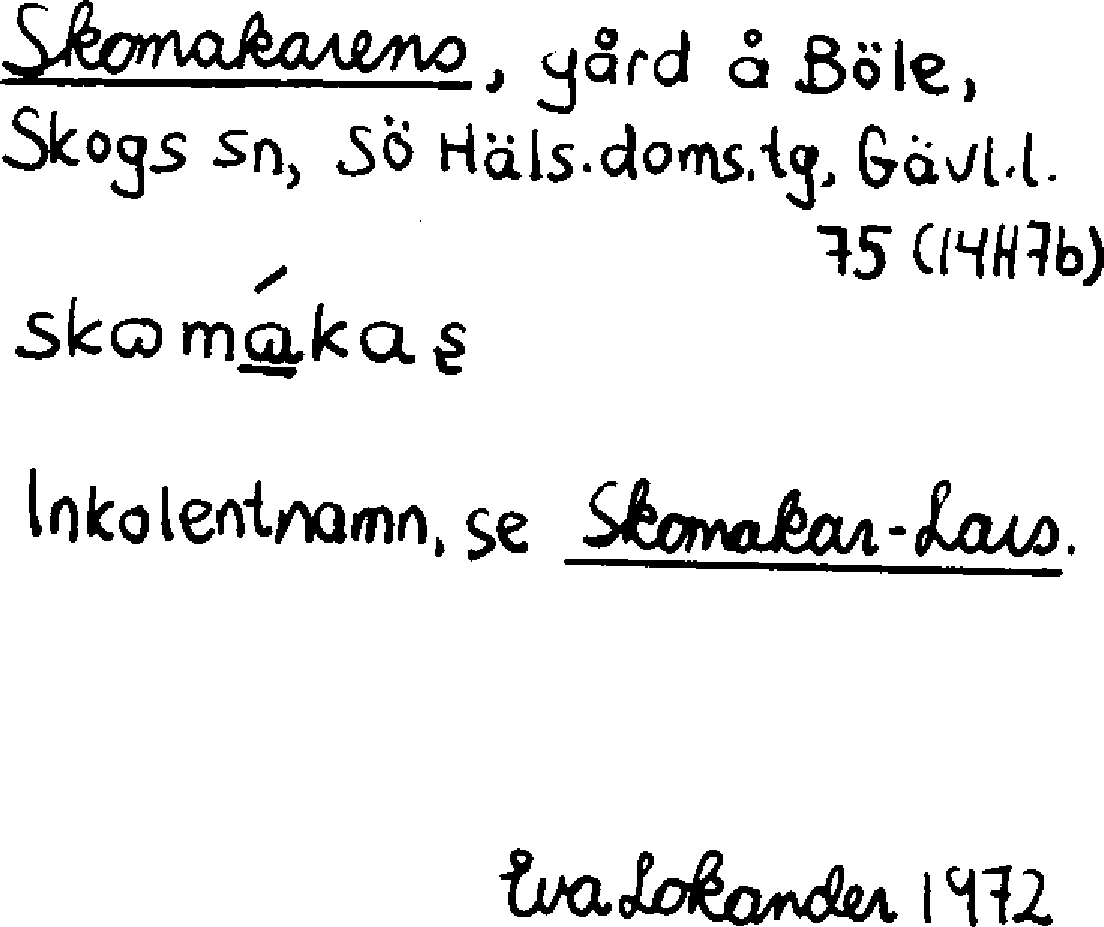 Skomakarens, gård å Böle,
Skogs sn, Sö Häls.doms.tg, Gävl.l.
75 (14H7b)
skɷmɷ́kaʂ
Inkolentnamn, se Skomakar-Lars.
Eva Lokander 1972